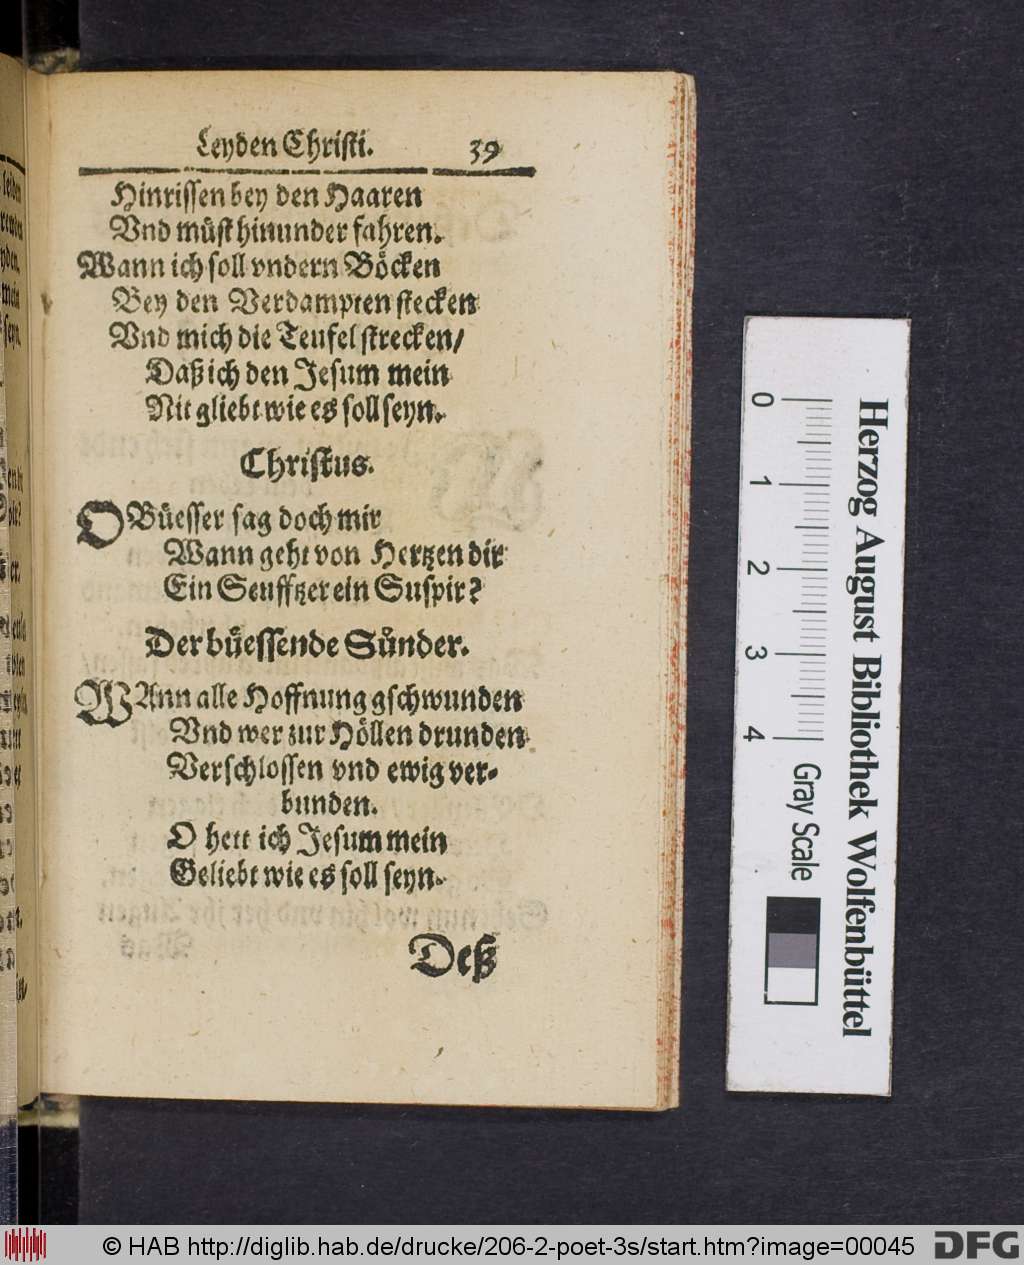 Leyden Christi. 39
Hinrissen bey den Haaren
Vnd müst hinunder fahren.
Wann ich soll vndern Böcken
Bey den Verdampten stecken
Vnd mich die Teufel strecken/
Daß ich den Jesum mein
Nit gliebt wie es soll seyn.
Christus.
O Büesser sag doch mir
Wann geht von Hertzen dir
Ein Seufftzer ein Suspir?
Der büessende Sůnder.
WAnn alle Hoffnung gschwunden
Vnd wer zur Höllen drunden
Verschlossen vnd ewig ver-
bunden.
O hett ich Jesum mein
Geliebt wie es soll seyn.
Deß
0 1 2 3 4
Gray Scale
Herzog August Bibliothek Wolfenbüttel
© HAB http://diglib.hab.de/drucke/206-2-poet-3s/start.htm?image=00045
DFG